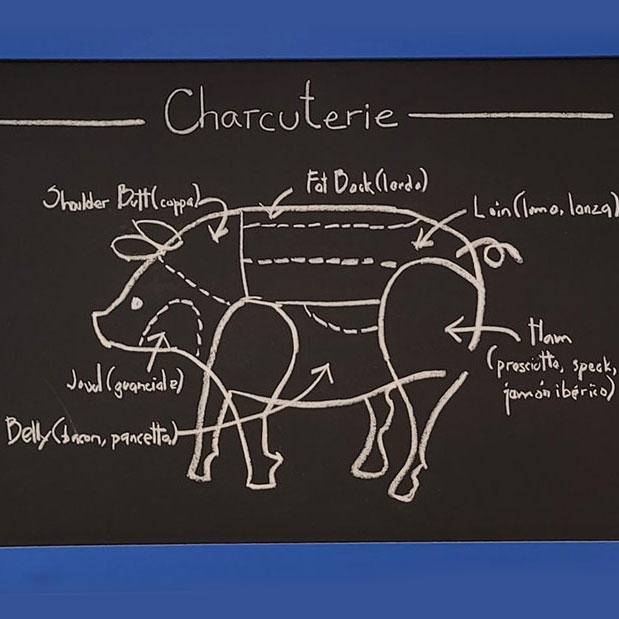 Charcuterie
Shoulder Butt (coppa)
Fat Back (lardo)
Loin (lomo, lonza)
Ham
(prosciutto, speck,
jamón ibérico)
Jowl (guanciale)
Belly (bacon, pancetta)